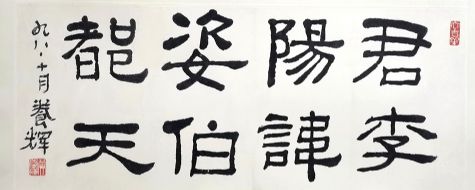 君李
陽諱
姿伯
都天
九八.十月養輝